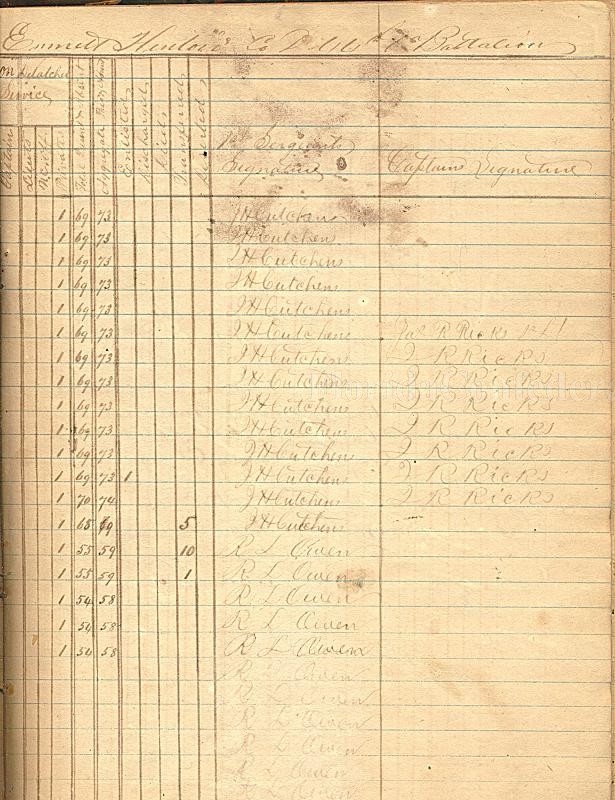 Co D Battalion
on Detached
Service
Captain
Lieuts
Privates
Aggregate
Enlisted
Discharged
Died
Transfered
Deserted
1st Sergeants
Signature
Captains Signature
1 69 73 J H Cutchens
1 69 73 J H Cutchens
1 69 73 J H Cutchens
1 69 73 J H Cutchens
1 69 73 J H Cutchens
1 69 73 J H Cutchens Jas R Ricks
1 69 73 J H Cutchens J R Ricks
1 69 73 J H Cutchens J R Ricks
1 69 73 J H Cutchens J R Ricks
1 69 73 J H Cutchens J R Ricks
1 69 73 J H Cutchens J R Ricks
1 69 73 1 J H Cutchens J R Ricks
1 70 74 J H Cutchens J R Ricks
1 65 69 5 J H Cutchens
1 55 59 10 R L Owen
1 55 59 1 R L Owen
1 54 58 R L Owen
1 54 58 R L Owen
1 54 58 R L Owen
R L Owen
R L Owen
R L Owen
R L Owen
R L Owen
R L Owen